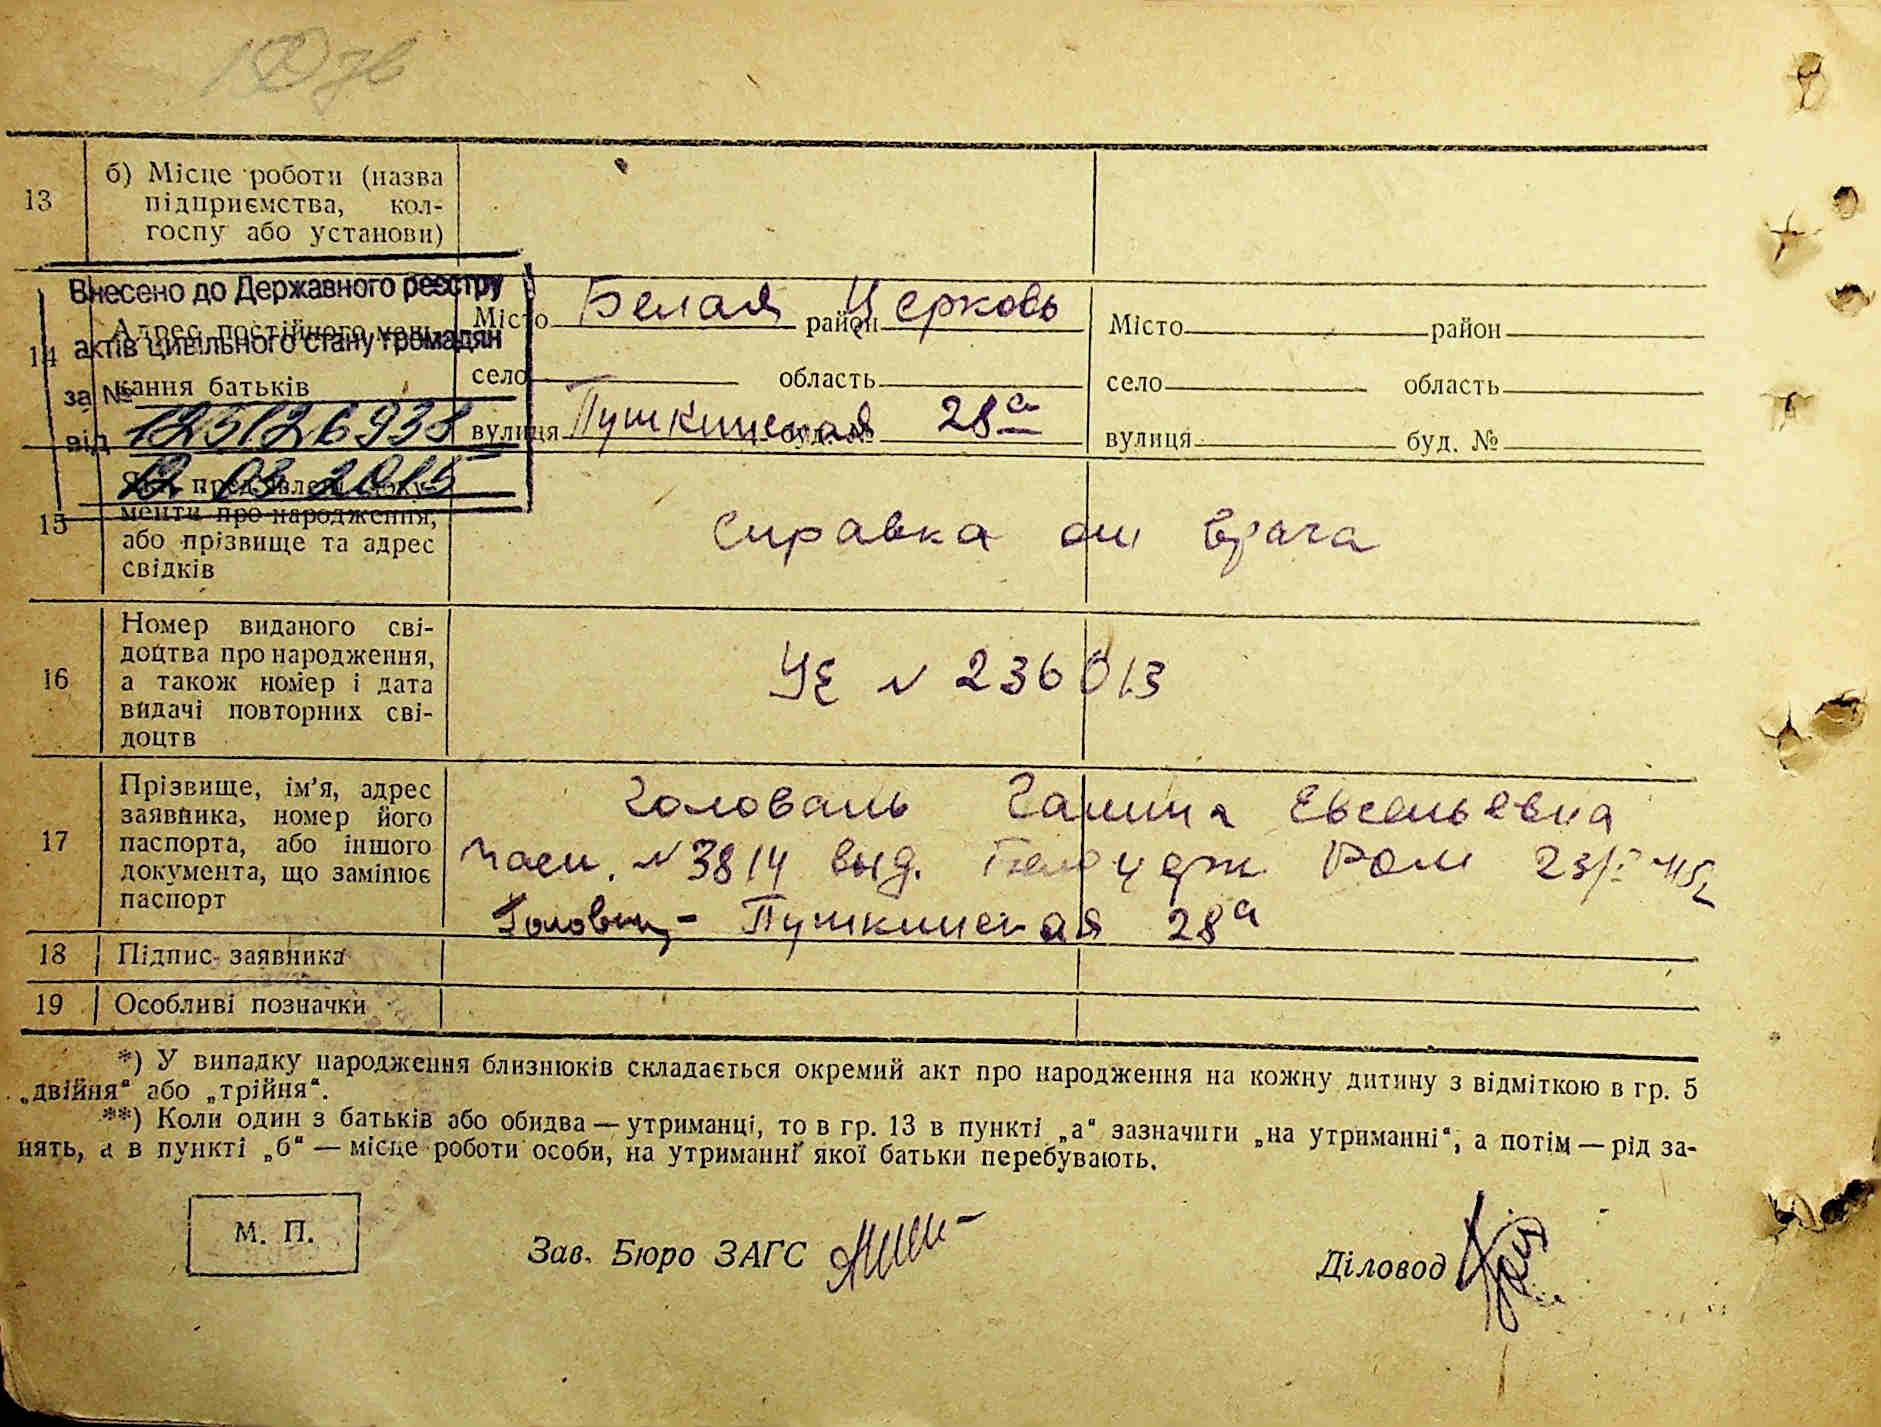 13
б) Місце роботи (назва
підприємства, кол-
госпу або установи)
Внесено до Державного реєстру
актів цивільного стану громадян
за № 125126938
від 12 03 2015
14
Адрес постійного меш-
кання батьків
Місто Белая Церковь район
село область
вулиця Пушкинская буд. № 28а
Місто район
село область
вулиця буд. №
15
Які пред'явлені доку-
менти про народження,
або прізвище та адрес
свідків
Справка от врача
16
Номер виданого сві-
доцтва про народження,
а також номер і дата
видачі повторних сві-
доцтв
УЕ N 236013
17
Прізвище, ім'я, адрес
заявника, номер його
паспорта, або іншого
документа, що замінює
паспорт
Головань Галина Евсеньевна
N 3814 выд. 23/
Пушкинская 28а
18 Підпис заявника
19 Особливі позначки
*) У випадку народження близнюків складається окремий акт про народження на кожну дитину з відміткою в гр. 5
„двійня“ або „трійня“.
**) Коли один з батьків або обидва — утриманці, то в гр. 13 в пункті „а“ зазначити „на утриманні“, а потім — рід за-
нять, а в пункті „б“ — місце роботи особи, на утриманні якої батьки перебувають.
М. П.
Зав. Бюро ЗАГС
Діловод